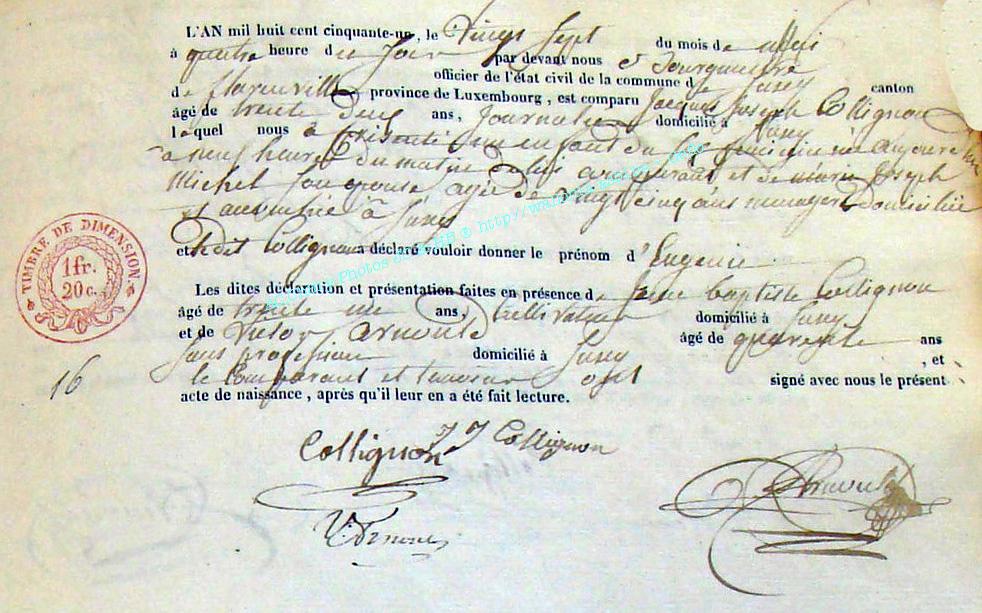 L'AN mil huit cent cinquante-un, le Vingt Sept du mois de Mai
à quatre heure de Jour par devant nous Bourgmestre
officier de l'état civil de la commune de Jusey canton
de florenville province de Luxembourg, est comparu Jacques Joseph Collignon
âgé de trente deux ans, Journalier domicilié à Jusey
lequel nous à présenté un enfant du féminin né aujourd'hui
à neuf heures du matin de lui comparant et de Marie Joseph
Michel son épouse agée de vingt cinq ans menagere domiciliée
à Jusey
et ledit Collignon a déclaré vouloir donner le prénom d'Eugenie
Les dites déclaration et présentation faites en présence de Jean baptiste Collignon
âgé de trente un ans, Cultivateur domicilié à Jusey
et de Victor Arnould âgé de quarante ans
Sans profession domicilié à Jusey , et
le Comparant et temoins ont signé avec nous le présent
acte de naissance, après qu'il leur en a été fait lecture.
TIMBRE DE DIMENSION
1 fr.
20 c.
16
Collignon
J J Collignon
V. Arnould
Arnould